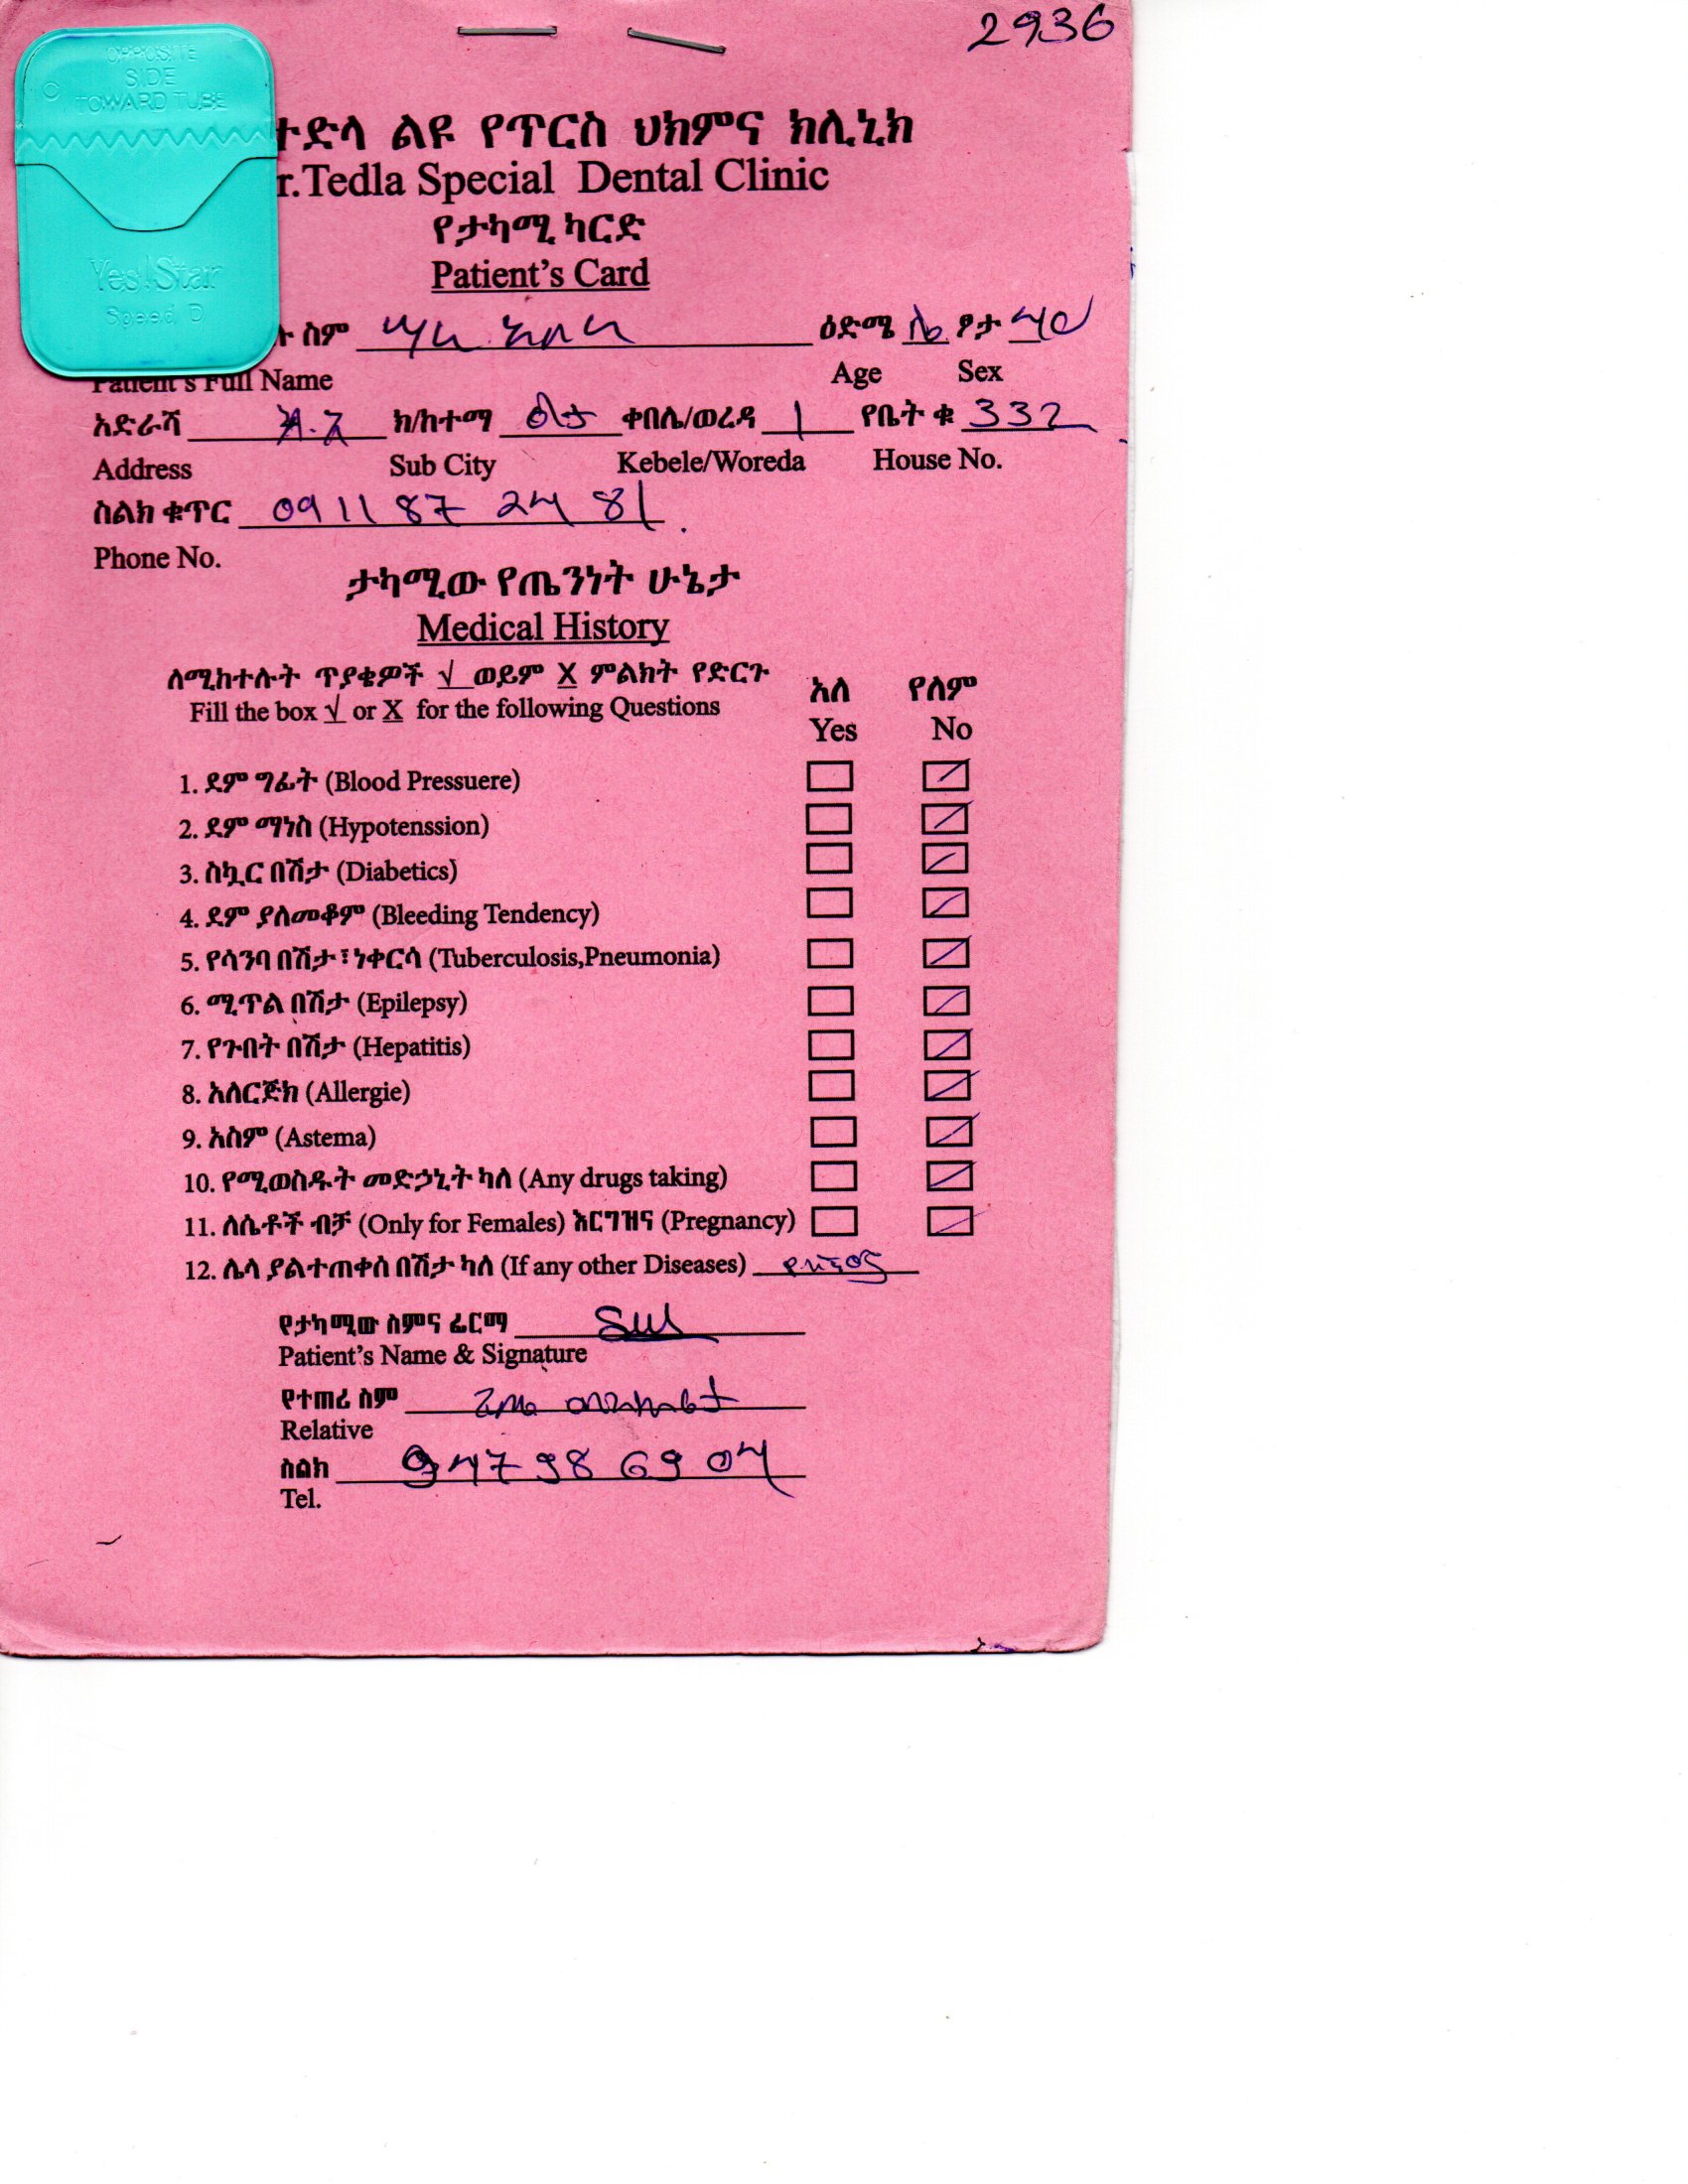 2936
OPPOSITE
SIDE
TOWARD TUBE
Yes!Star
Speed D
ተድላ ልዩ የጥርስ ህክምና ክሊኒክ
r.Tedla Special Dental Clinic
የታካሚ ካርድ
Patient's Card
ሉ ስም ዕድሜ ፆታ
Patient's Full Name Age Sex
አድራሻ አ.አ ክ/ከተማ ቀበሌ/ወረዳ 1 የቤት ቁ 332
Address Sub City Kebele/Woreda House No.
ስልክ ቁጥር 0911 87 24 81
Phone No.
ታካሚው የጤንነት ሁኔታ
Medical History
ለሚከተሉት ጥያቄዎች √ ወይም X ምልክት የድርጉ
Fill the box √ or X for the following Questions
አለ የለም
Yes No
1. ደም ግፊት (Blood Pressuere)
2. ደም ማነስ (Hypotenssion)
3. ስኳር በሽታ (Diabetics)
4. ደም ያለመቆም (Bleeding Tendency)
5. የሳንባ በሽታ፣ነቀርሳ (Tuberculosis,Pneumonia)
6. ሚጥል በሽታ (Epilepsy)
7. የጉበት በሽታ (Hepatitis)
8. አለርጅክ (Allergie)
9. አስም (Astema)
10. የሚወስዱት መድኃኒት ካለ (Any drugs taking)
11. ለሴቶች ብቻ (Only for Females) እርግዝና (Pregnancy)
12. ሌላ ያልተጠቀሰ በሽታ ካለ (If any other Diseases)
የታካሚው ስምና ፊርማ
Patient's Name & Signature
የተጠሪ ስም
Relative
ስልክ 947 98 69 04
Tel.